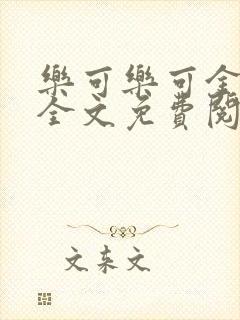 樂可樂可全
全文免費閱
文东文